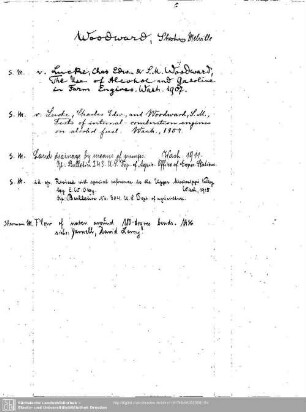 Woodward, Sherman Melville
S. M. v. Lucke, Chas Edw. & S. M. Woodward,
The Use of Alcohol and Gasoline
in Farm Engines. Wash. 1907.
S. M. v. Lucke, Charles Edw., and Woodward, S. M.,
Tests of internal combustion engines
on alcohol fuel. Wash., 1907
S. M. Land drainage by means of pumps. Wash. 1911.
Bulletin 243. U. S. Dep. of Agric. Office of Exper. Stations.
S. M. Revised with special reference to the Upper Mississippi Valley
by Wash., 1915
Bulletin No. 304. U. S. Dept. of agriculture.
Sherman M. Flow of water around 180-degree bends. 1936
Yarnell, David Leroy